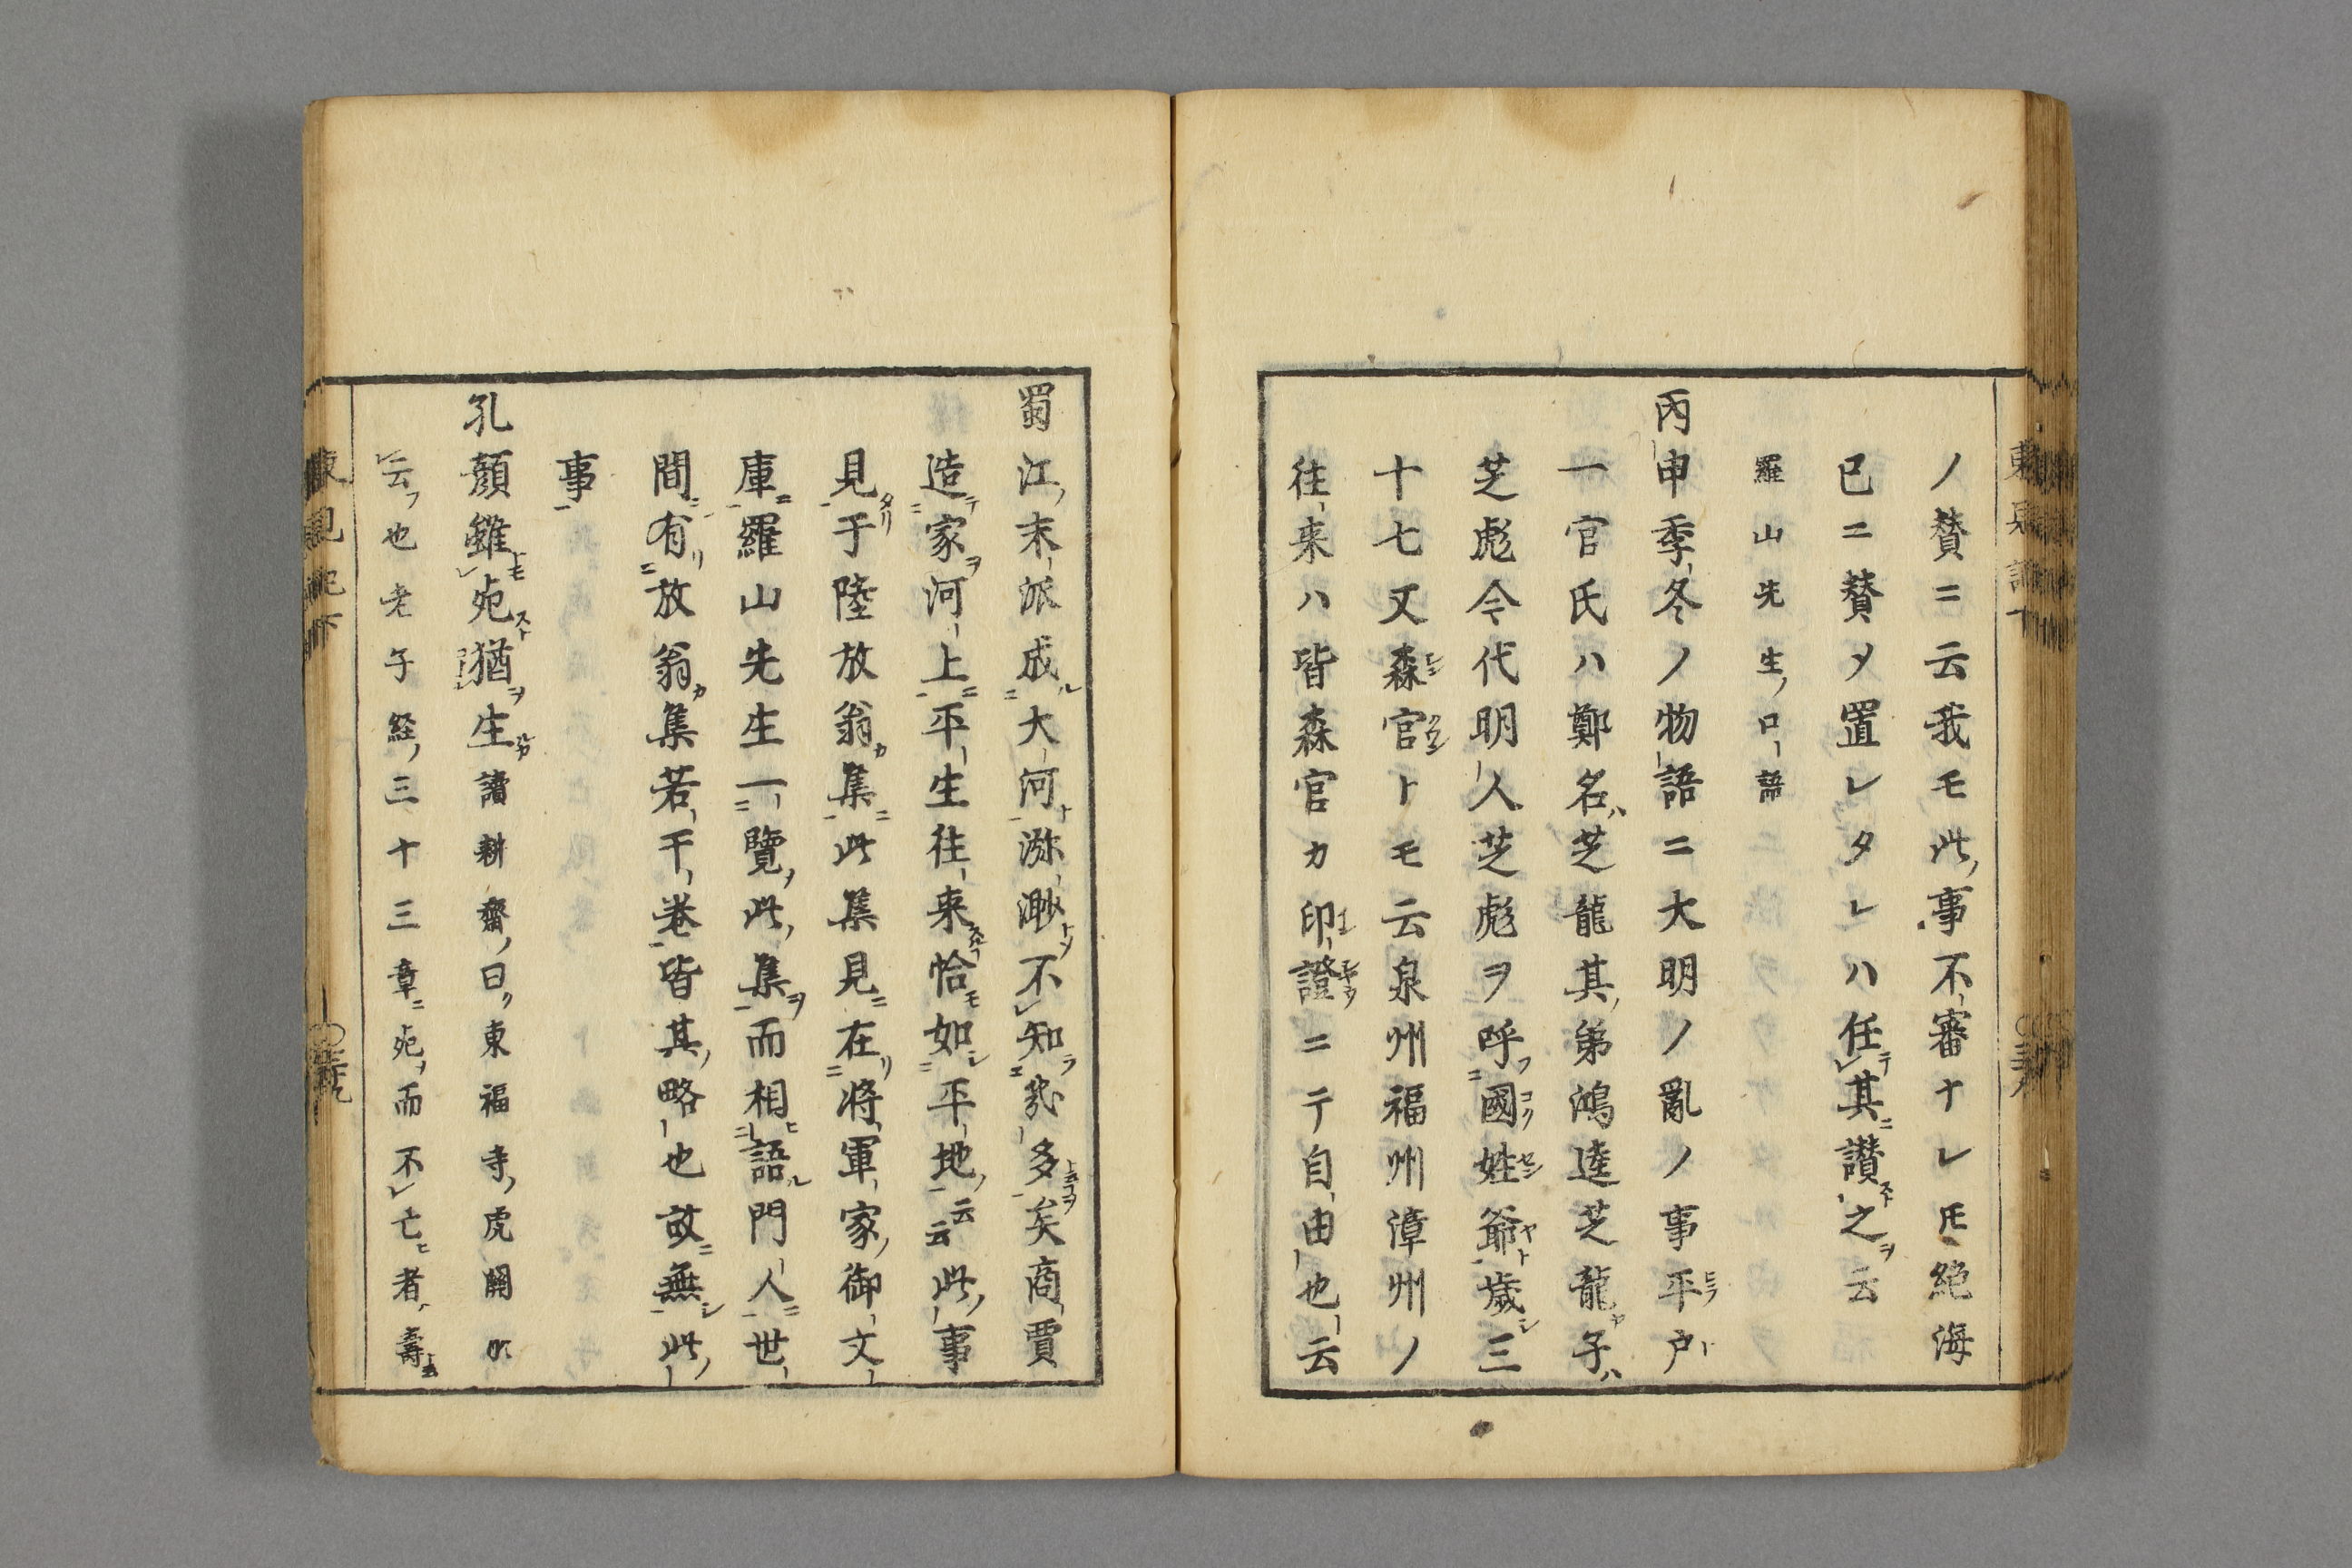 ノ賛ニ云我モ此ノ事不審ナレ𪜈絶海
已ニ賛ヲ置レタレハ任テ其ニ讃スト之ヲ云
羅山先生ノ口語
丙申季冬ノ物語ニ大明ノ亂ノ事平戸
一官氏ハ鄭名ハ芝龍其ノ弟鴻逵芝龍カ子ハ
芝彪今代明人芝彪ヲ呼フ國姓爺ト歳シ三
十七又森官トモ云泉州福州漳州ノ
往来ハ皆森官カ印證ニテ自由也云
蜀江ノ末派成ル大河ト瀰渺トシ不知ラ幾多ト云コヲ矣商賈
造テ家ヲ河上ニ平生往来スルコ恰モ如シ平地ノ云云此ノ事
見タリ于陸放翁カ集ニ此集見ニ在リ將軍家ノ御文
庫ニ羅山先生一覽ノ此ノ集ヲ而相ヒ語ル門人ニ世
間ニ有リ放翁カ集若干卷皆其ノ略也故ニ無シ此ノ
事
孔顔雖トモ死スト猶ヲ生ルカ讀耕齋ノ曰ク東福寺ノ虎關
云フ也老子経ノ三十三章ニ死ヲ而不亡ヒ者ハ壽ト云